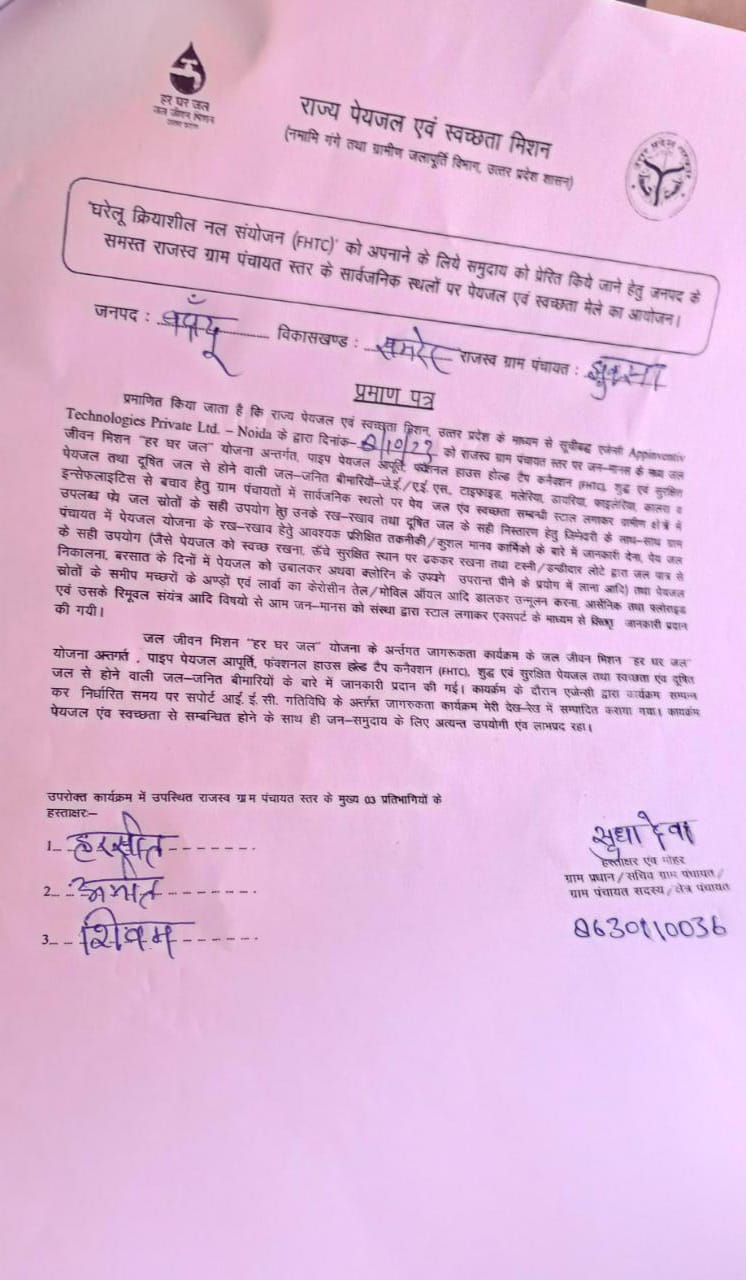 हर घर जल
जल जीवन मिशन
उत्तर प्रदेश
राज्य पेयजल एवं स्वच्छता मिशन
(नमामि गंगे तथा ग्रामीण जलापूर्ति विभाग, उत्तर प्रदेश शासन)
उत्तर प्रदेश सरकार
'घरेलू क्रियाशील नल संयोजन (FHTC)' को अपनाने के लिये समुदाय को प्रेरित किये जाने हेतु जनपद के
समस्त राजस्व ग्राम पंचायत स्तर के सार्वजनिक स्थलों पर पेयजल एवं स्वच्छता मेले का आयोजन।
जनपद : बदायूँ विकासखण्ड : समरेर राजस्व ग्राम पंचायत :
प्रमाण पत्र
प्रमाणित किया जाता है कि राज्य पेयजल एवं स्वच्छता मिशन, उत्तर प्रदेश के माध्यम से सूचीबद्ध एजेन्सी Appinventiv
Technologies Private Ltd. – Noida के द्वारा दिनांक- 8/10/23 को राजस्व ग्राम पंचायत स्तर पर जन-मानस के मध्य जल
जीवन मिशन "हर घर जल" योजना अन्तर्गत, पाइप पेयजल आपूर्ति, फंक्शनल हाउस होल्ड टैप कनैक्शन (FHTC), शुद्ध एवं सुरक्षित
पेयजल तथा दूषित जल से होने वाली जल-जनित बीमारियों-जे.ई./ए.ई. एस, टाइफाइड, मलेरिया, डायरिया, फाइलेरिया, कालरा व
इन्सेफलाइटिस से बचाव हेतु ग्राम पंचायतों में सार्वजनिक स्थलो पर पेय जल एंव स्वच्छता सम्बन्धी स्टाल लगाकर ग्रामीण क्षेत्रे में
उपलब्ध पेय जल स्रोतों के सही उपयोग हेतु उनके रख-रखाव तथा दूषित जल के सही निस्तारण हेतु जिम्मेवरी के साथ-साथ ग्राम
पंचायत में पेयजल योजना के रख-रखाव हेतु आवश्यक प्रशिक्षित तकनीकी/कुशल मानव कार्मिको के बारे में जानकारी देना, पेय जल
के सही उपयोग (जैसे पेयजल को स्वच्छ रखना, ऊँचे सुरक्षित स्थान पर ढककर रखना तथा टस्नी/डन्डीदार लोटे द्वारा जल पात्र से
निकालना, बरसात के दिनों में पेयजल को उबालकर अथवा क्लोरिन के उपयोग उपरान्त पीने के प्रयोग में लाना आदि) तथा पेयजल
स्रोतों के समीप मच्छरों के अण्डों एवं लार्वा का केरोसीन तेल/मोविल ऑयल आदि डालकर उन्मूलन करना, आर्सेनिक तथा फ्लोराइड
एवं उसके रिमूवल संयंत्र आदि विषयो से आम जन-मानस को संस्था द्वारा स्टाल लगाकर एक्सपर्ट के माध्यम से जानकारी प्रदान
की गयी।
जल जीवन मिशन "हर घर जल" योजना के अर्न्तगत जागरुकता कार्यक्रम के जल जीवन मिशन "हर घर जल"
योजना अन्तगर्त, पाइप पेयजल आपूर्ति, फंक्शनल हाउस होल्ड टैप कनैक्शन (FHTC), शुद्ध एवं सुरक्षित पेयजल तथा स्वच्छता एंव दूषित
जल से होने वाली जल-जनित बीमारियों के बारे में जानकारी प्रदान की गई। कार्यक्रम के दौरान एजेन्सी द्वारा कार्यक्रम सम्पन्न
कर निर्धारित समय पर सपोर्ट आई. ई. सी. गतिविधि के अन्तर्गत जागरुकता कार्यक्रम मेरी देख-रेख में सम्पादित कराया गया। कार्यक्रम
पेयजल एंव स्वच्छता से सम्बन्धित होने के साथ ही जन-समुदाय के लिए अत्यन्त उपयोगी एंव लाभप्रद रहा।
उपरोक्त कार्यक्रम में उपस्थित राजस्व ग्राम पंचायत स्तर के मुख्य 03 प्रतिभागियों के
हस्ताक्षर:–
1. हरसीत
2. अमीत
3. शिवम
सुधा देवी
हस्ताक्षर एंव मोहर
ग्राम प्रधान/सचिव ग्राम पंचायत/
ग्राम पंचायत सदस्य/क्षेत्र पंचायत
8630110036